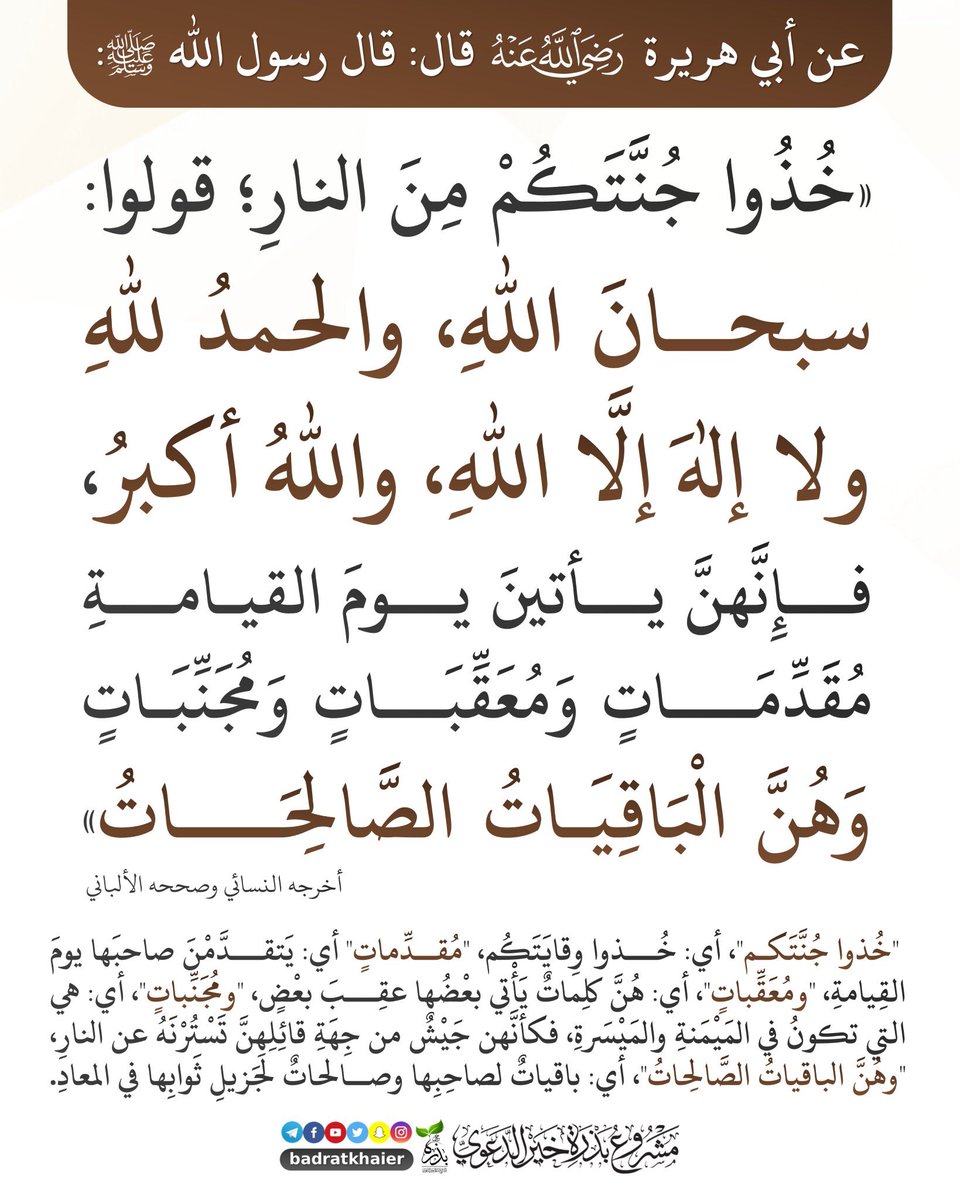 عن أبي هريرة رَضَيَ اللَّهُ عَنْهُ قال: قال رسول الله ﷺ:
«خُذُوا جُنَّتَكُمْ مِنَ النارِ؛ قولوا:
سبحـــانَ اللهِ، والحمدُ للهِ
ولا إلٰهَ إلَّا اللهِ، واللهُ أكبرُ،
فـــإِنَّهنَّ يـــأتينَ يـــومَ القيـامـــةِ
مُقَدِّمَـــاتٍ وَمُعَقِّبَـــاتٍ وَمُجَنِّبَـاتٍ
وَهُنَّ الْبَاقِيَـاتُ الصَّالِحَـــاتُ»
أخرجه النسائي وصححه الألباني
"خُذوا جُنَّتَكـم"، أي: خُـــذوا وِقايَتَكُم، "مُقـــدِّماتٍ" أي: يَتقـــدَّمْنَ صاحبَها يومَ
القِيامةِ، "ومُعَقِّباتٍ"، أي: هُنَّ كلِماتٌ يَأْتي بعْضُها عقِـــبَ بعْضٍ، "ومُجَنِّباتٍ"، أي: هي
التي تكونُ في المَيْمَنةِ والمَيْسَرةِ، فكأنَّهن جَيْشٌ من جِهَةِ قائلِهنَّ تَسْتُرْنَهُ عن النارِ،
"وهُنَّ الباقياتُ الصَّالِحاتُ"، أي: باقياتٌ لصاحِبِها وصـــالحاتٌ لجَزيلِ ثَوابِها في المعادِ.
مشروع بذرة خير الدعوي
بذرة
badratkhaier